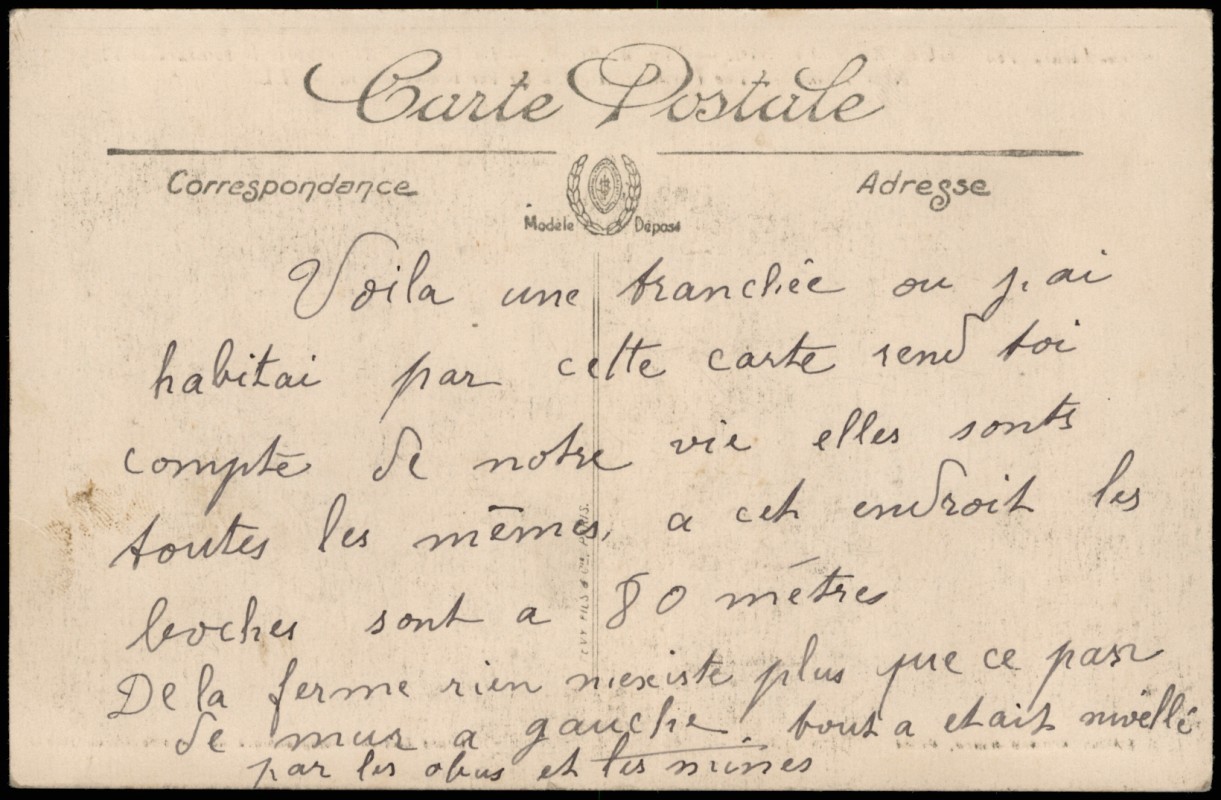 Carte Postale
Correspondance
Adresse
Modèle Déposé
Voila une tranchée ou j'ai
habitai par cette carte rend toi
compte de notre vie elles sonts
toutes les mêmes, a cet endroit les
boches sont a 80 mètres
De la ferme rien nexiste plus que ce pan
de mur a gauche. tout a etait nivellé
par les obus et les mines